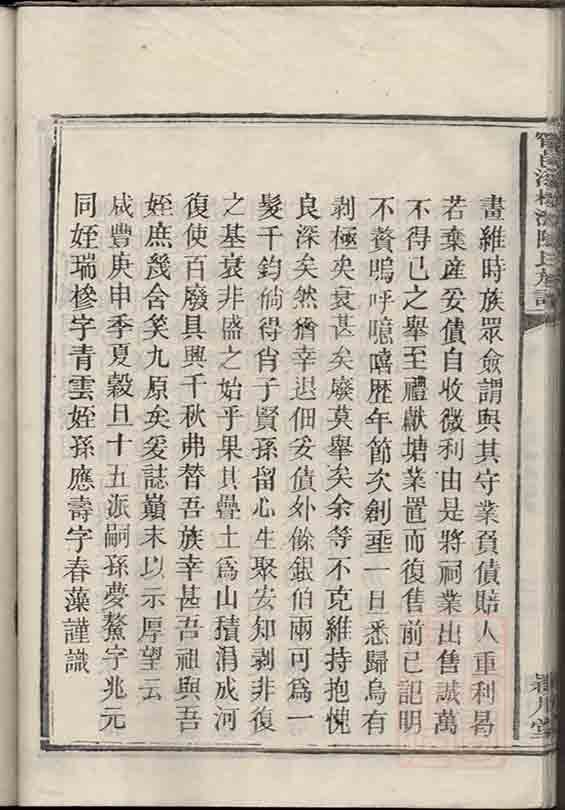 畫維時族眾僉謂與其守業負債賠人重利曷
若棄產妥債自收微利由是將祠業出售誠萬
不得已之舉至禮獻塘業置而復售前已記明
不贅嗚呼噫嘻歷年節次創垂一旦悉歸烏有
剥極矣衰甚矣廢莫舉矣余等不克維持抱愧
良深矣然猶幸退佃妥債外餘銀伯兩可為一
髮千鈞倘得肖子賢孫留心生聚安知剥非復
之基衰非盛之始乎果其疊土為山積涓成河
復使百廢具興千秋弗替吾族幸甚吾祖與吾
姪庶幾含笑九原矣爰誌巔末以示厚望云
咸豐庚申季夏穀旦十五派嗣孫夢鰲字兆元
同姪瑞椮字青雲姪孫應壽字春藻謹識